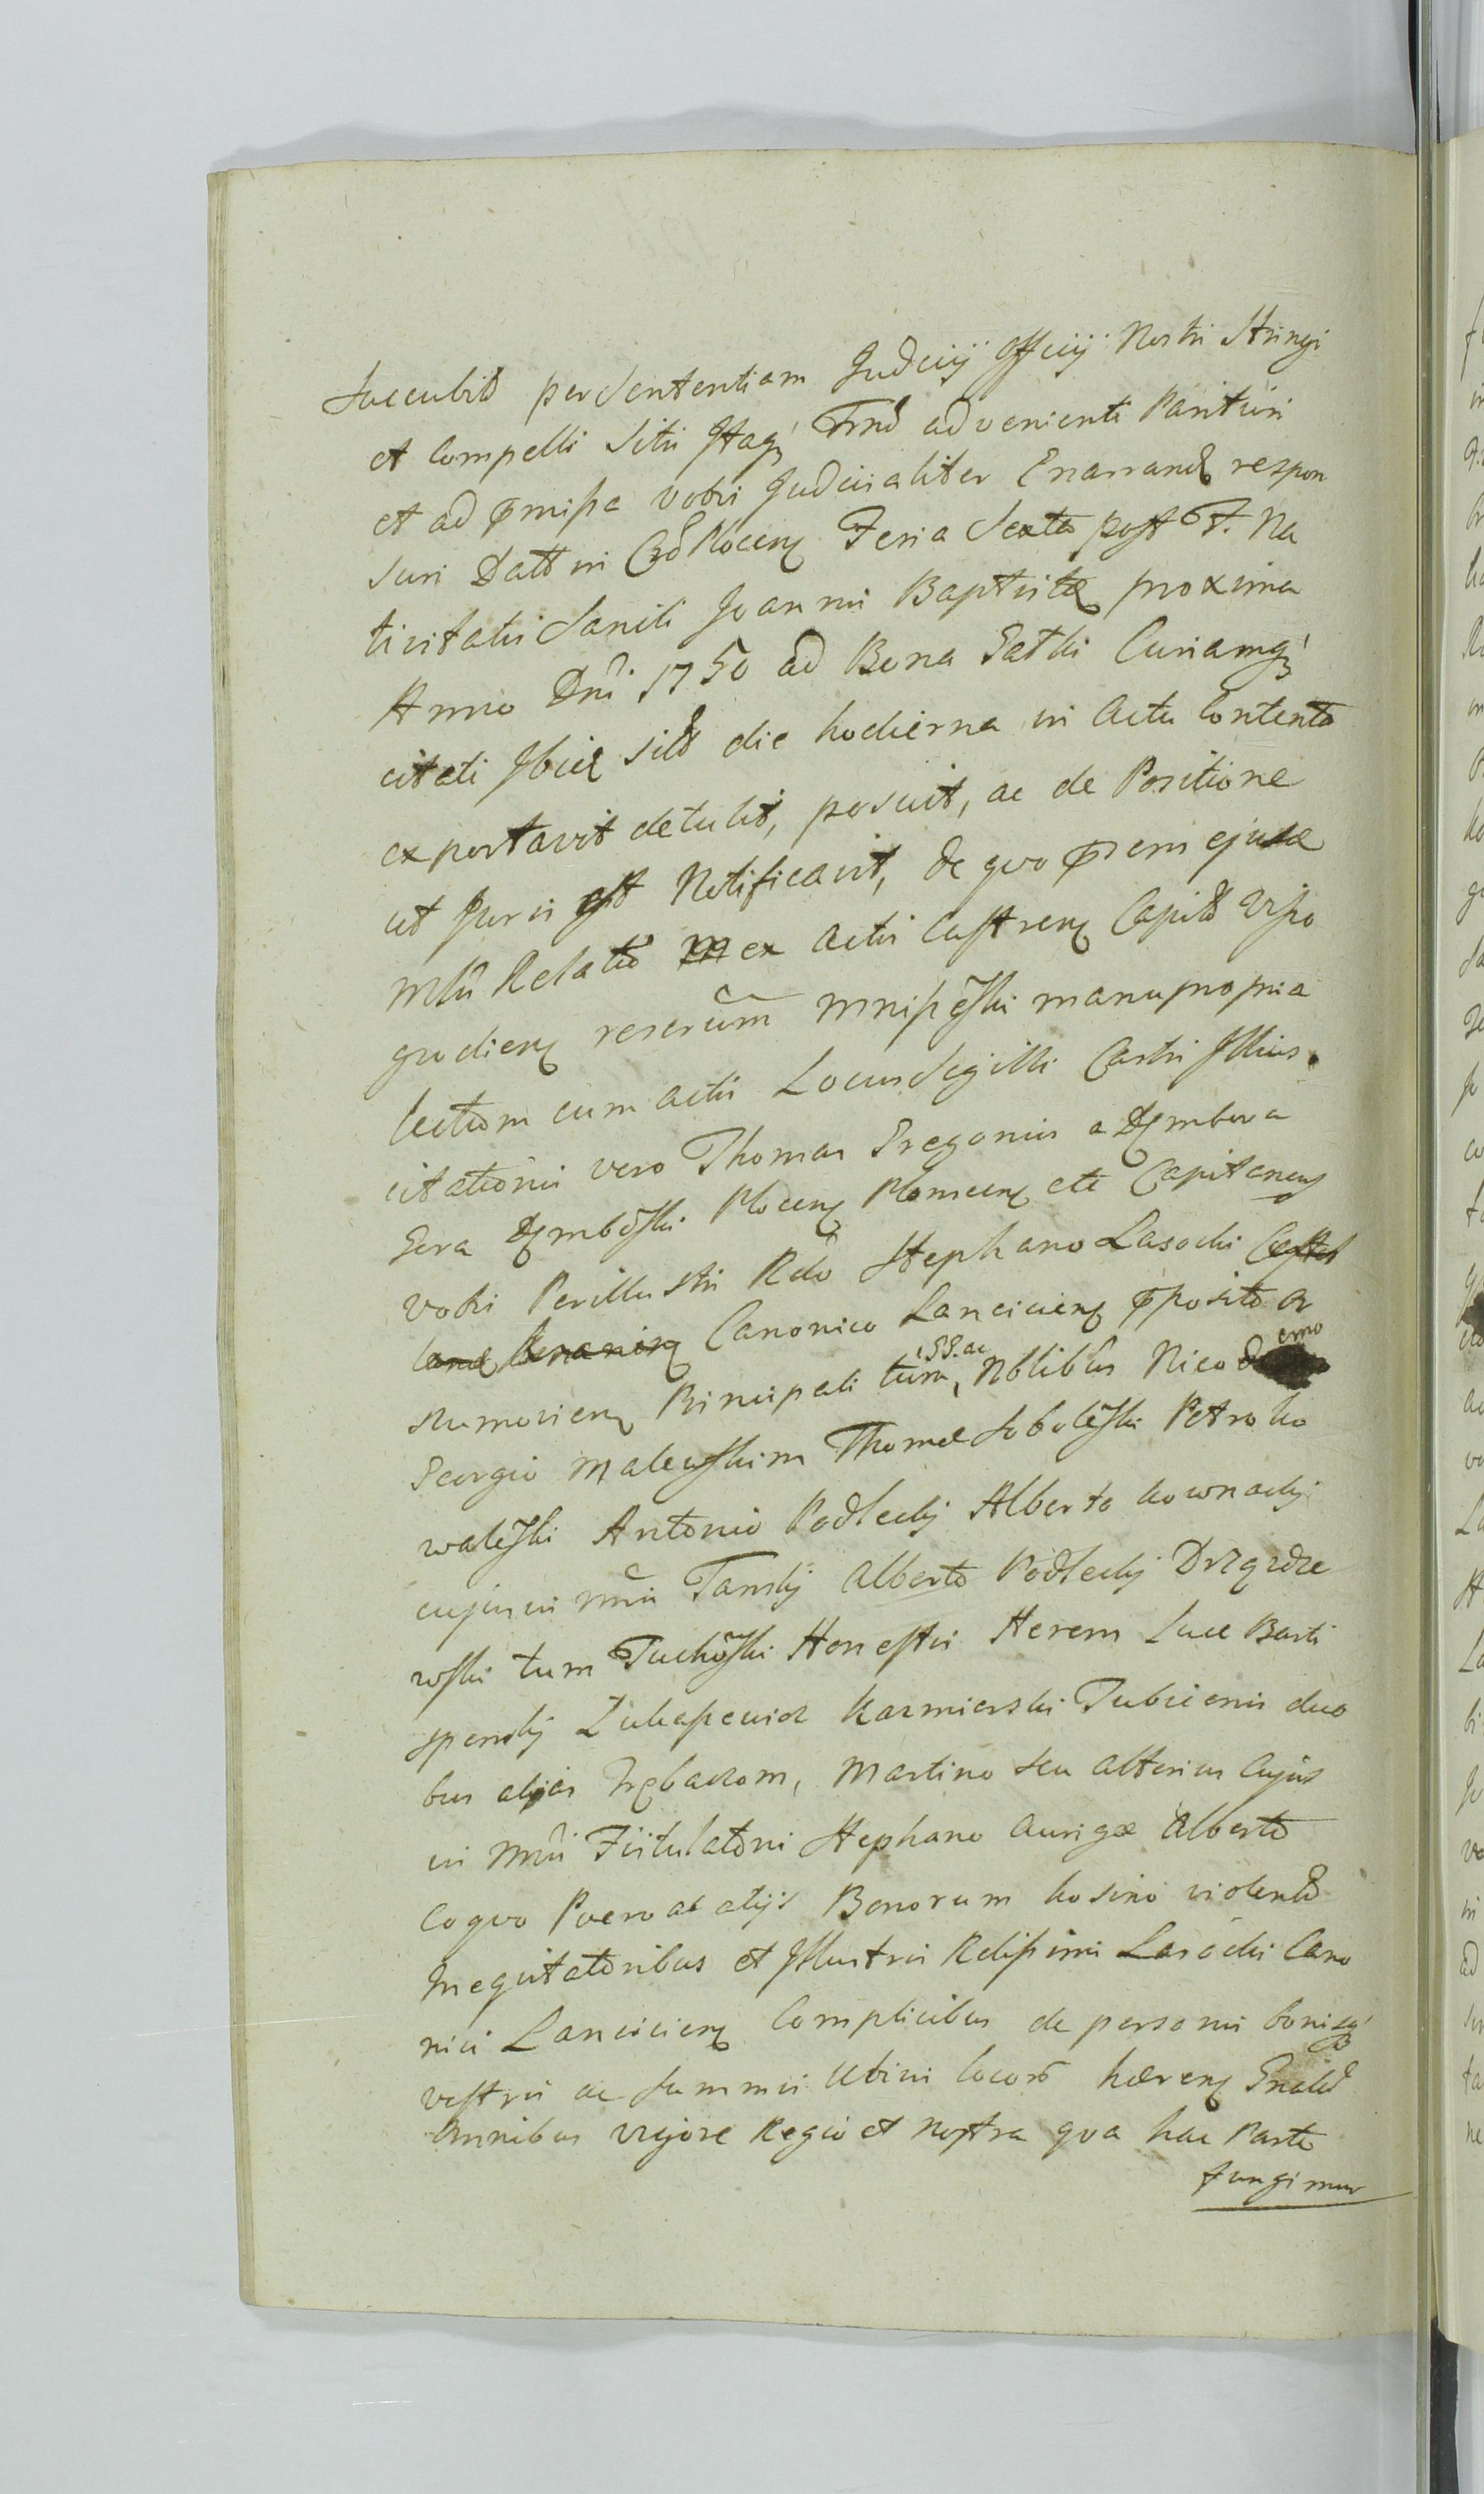 Succubit per Sententiam Judicij Officij Nostri Stringi
et Compelli Sitis Itaq; Trnô advenienti Parituri
et ad pmissa vobis Judicialiter Enarrand respon
suri Datt in Cro Plocen Feria Sexta post F. Na
tivitatis Sancti Joannis Baptistæ proxima
Anno Dni 1750 ad Bona Gatki Curiamq;
citati Ibid sitt die hodierna in Actu Contento
exportavit detulit, posuit, ac de Positione
ut Juris est Notificavit, de quo psens ejusd
Mlis Relatio ex Actis Castren Capitt Wyszo
grodien reserum manupropria
lectum cum actis Locus Sigilli Castri Illius.
citationis vero Thomas Gregorius a Dembowa
Gora Dembowski Plocen Plonscen etc Capitaneus
vobis Perillustri Rdo Stephano Lasocki
Canonico Lancicien pposito
Principali tum, SS. ac Nblibus Nicodemo
Georgio Malewskim Thomæ Sobolewski Petro Ko
walewski Antonio Podlecky Alberto Kownacky
cujusvis mnis Tansky Alberto Podlecky Drzązdze
wski tum Tuchowski Honestis Herem Lucæ Barti
Łukaszewicz Kazmierski Tubicenis duo
bus alias Trębaczom, Martino seu alterius Cujus
vis mnis Fistulatoris Stephano Aurigæ Alberto
Coquo Puero ac alijs Bonorum Kosino violentis
Inequitatoribus et Illustris Rdissimi Lasocki Cano
nici Lancicien Complicibus de personis bonisq;
vestris ac summis Ubivis locorm hæren Gnalit
Omnibus vigore Regio et nostra qua hac Parte
fungimur